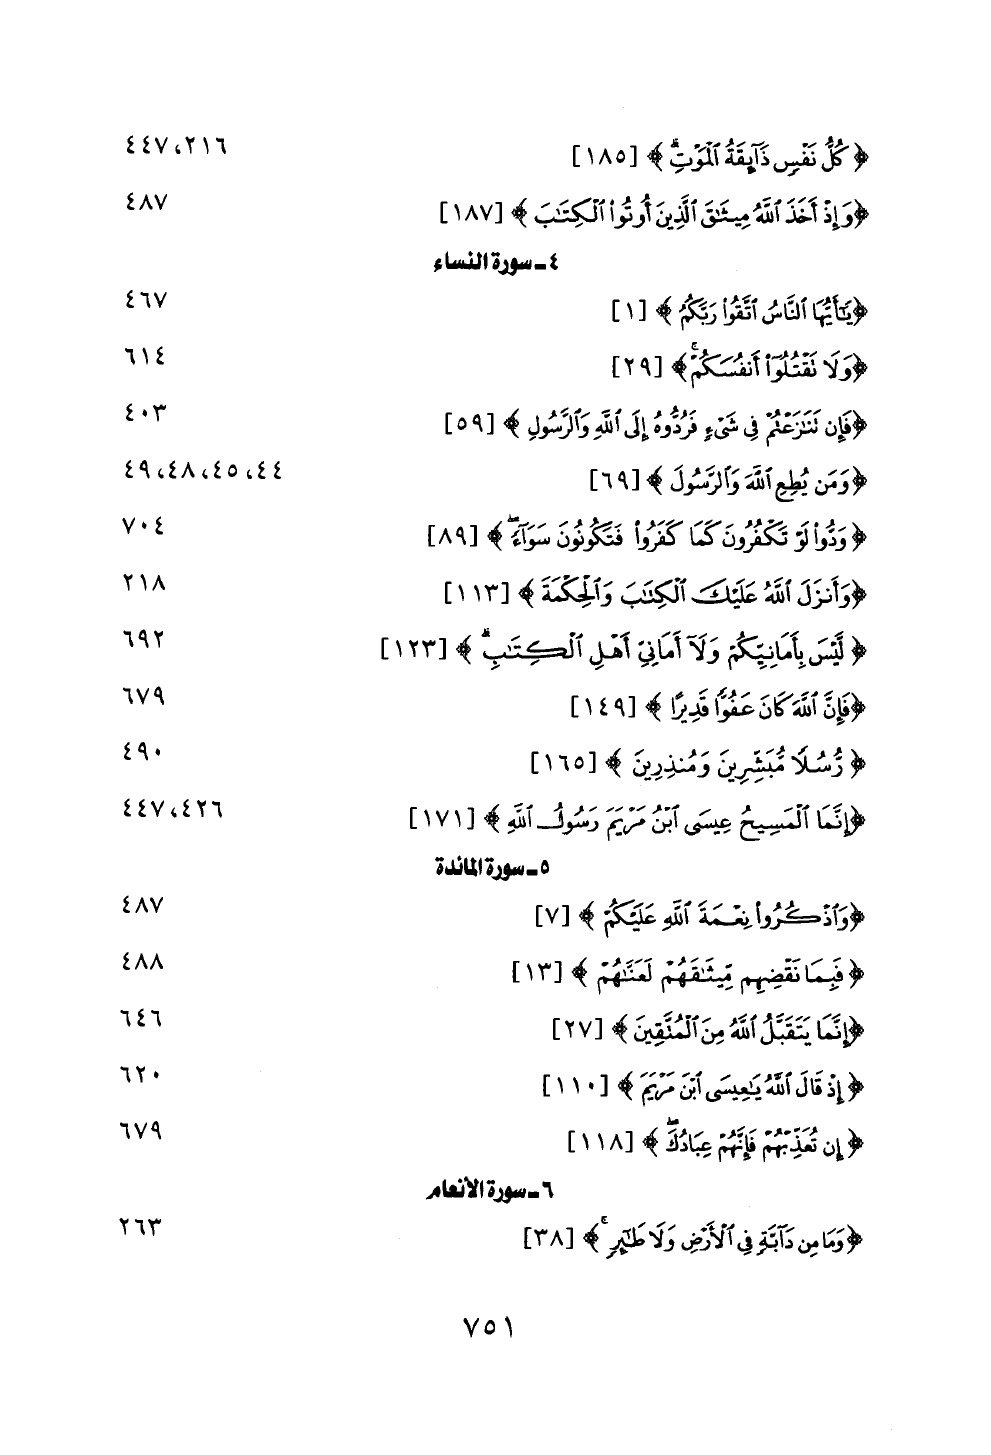 ﴿ كُلُّ نَفْسٍ ذَآئِقَةُ ٱلْمَوْتِۗ ﴾ [١٨٥] ٢١٦، ٤٤٧
﴿وَإِذْ أَخَذَ ٱللَّهُ مِيثَـٰقَ ٱلَّذِينَ أُوتُوا۟ ٱلْكِتَـٰبَ ﴾ [١٨٧] ٤٨٧
٤ ـ سورة النساء
﴿يَـٰٓأَيُّهَا ٱلنَّاسُ ٱتَّقُوا۟ رَبَّكُمُ ﴾ [١] ٤٦٧
﴿وَلَا تَقْتُلُوٓا۟ أَنفُسَكُمْۚ﴾ [٢٩] ٦١٤
﴿فَإِن تَنَـٰزَعْتُمْ فِى شَىْءٍ فَرُدُّوهُ إِلَى ٱللَّهِ وَٱلرَّسُولِ ﴾ [٥٩] ٤٠٣
﴿وَمَن يُطِعِ ٱللَّهَ وَٱلرَّسُولَ ﴾ [٦٩] ٤٤، ٤٥، ٤٨، ٤٩
﴿ وَدُّوا۟ لَوْ تَكْفُرُونَ كَمَا كَفَرُوا۟ فَتَكُونُونَ سَوَآءًۖ ﴾ [٨٩] ٧٠٤
﴿وَأَنزَلَ ٱللَّهُ عَلَيْكَ ٱلْكِتَـٰبَ وَٱلْحِكْمَةَ ﴾ [١١٣] ٢١٨
﴿ لَّيْسَ بِأَمَانِيِّكُمْ وَلَآ أَمَانِىِّ أَهْلِ ٱلْكِتَـٰبِۗ ﴾ [١٢٣] ٦٩٢
﴿فَإِنَّ ٱللَّهَ كَانَ عَفُوًّا قَدِيرًا ﴾ [١٤٩] ٦٧٩
﴿ رُّسُلًا مُّبَشِّرِينَ وَمُنذِرِينَ ﴾ [١٦٥] ٤٩٠
﴿إِنَّمَا ٱلْمَسِيحُ عِيسَى ٱبْنُ مَرْيَمَ رَسُولُ ٱللَّهِ ﴾ [١٧١] ٤٢٦، ٤٤٧
٥ ـ سورة المائدة
﴿وَٱذْكُرُوا۟ نِعْمَةَ ٱللَّهِ عَلَيْكُمْ ﴾ [٧] ٤٨٧
﴿ فَبِمَا نَقْضِهِم مِّيثَـٰقَهُمْ لَعَنَّـٰهُمْ ﴾ [١٣] ٤٨٨
﴿إِنَّمَا يَتَقَبَّلُ ٱللَّهُ مِنَ ٱلْمُتَّقِينَ ﴾ [٢٧] ٦٤٦
﴿ إِذْ قَالَ ٱللَّهُ يَـٰعِيسَى ٱبْنَ مَرْيَمَ ﴾ [١١٠] ٦٢٠
﴿ إِن تُعَذِّبْهُمْ فَإِنَّهُمْ عِبَادُكَۖ ﴾ [١١٨] ٦٧٩
٦ ـ سورة الأنعام
﴿وَمَا مِن دَآبَّةٍ فِى ٱلْأَرْضِ وَلَا طَـٰٓئِرٍۚ ﴾ [٣٨] ٢٦٣
٧٥١